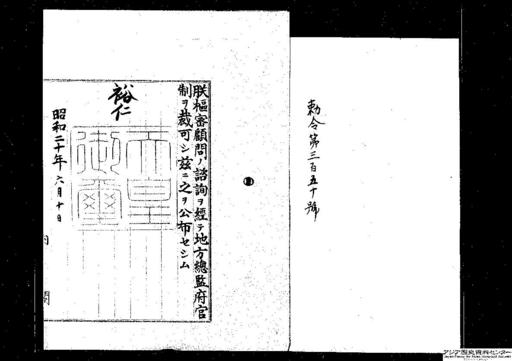 勅令第三百五十號
朕樞密顧問ノ諮詢ヲ經テ地方總監府官
制ヲ裁可シ茲ニ之ヲ公布セシム
裕仁
天皇
御璽
昭和二十年六月十日
内閣
アジア歴史資料センター